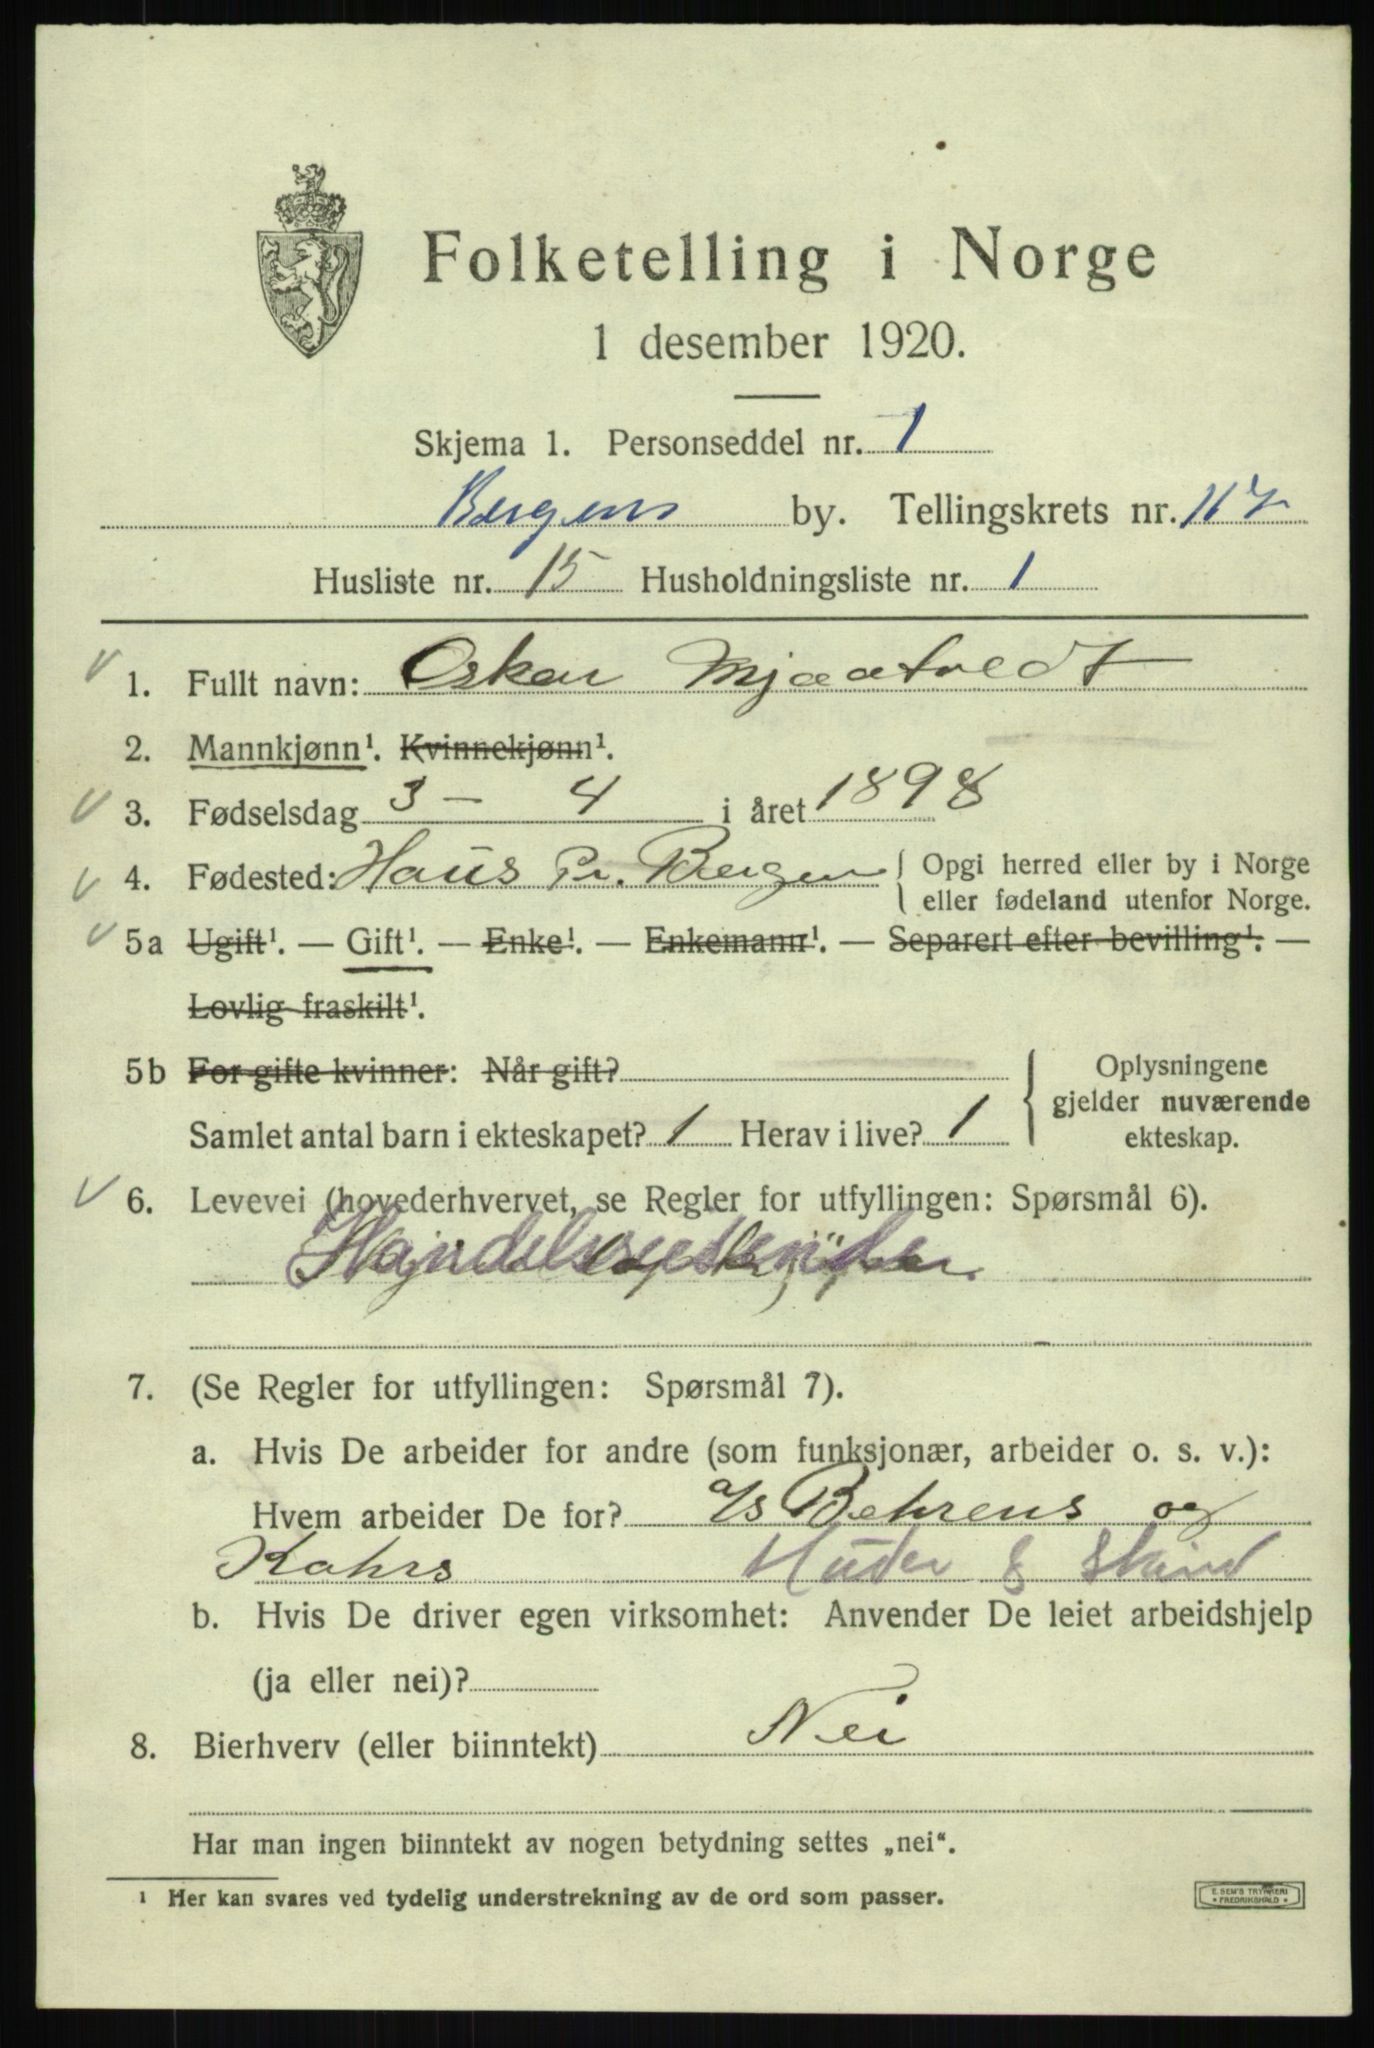 Folketelling i Norge
1 desember 1920.
Skjema 1. Personseddel nr. 1
Bergens by. Tellingskrets nr. 117
Husliste nr. 15 Husholdningsliste nr. 1
1. Fullt navn: Oskar Mjaatvedt
2. Mannkjønn¹. Kvinnekjønn¹.
3. Fødselsdag 3 - 4 i året 1898
4. Fødested: Haus Pr. Bergen { Opgi herred eller by i Norge
eller fødeland utenfor Norge.
5a Ugift¹. — Gift¹. — Enke¹. — Enkemann¹. — Separert efter bevilling¹. —
Lovlig fraskilt¹.
5b For gifte kvinner: Når gift?
Samlet antal barn i ekteskapet? 1 Herav i live? 1
{ Oplysningene
gjelder nuværende
ekteskap.
6. Levevei (hovederhvervet, se Regler for utfyllingen: Spørsmål 6).
Handelsreisende
7. (Se Regler for utfyllingen: Spørsmål 7).
a. Hvis De arbeider for andre (som funksjonær, arbeider o. s. v.):
Hvem arbeider De for? a/s Behrens og
Kahrs Huder & Skind
b. Hvis De driver egen virksomhet: Anvender De leiet arbeidshjelp
(ja eller nei)?
8. Bierhverv (eller biinntekt) Nei
Har man ingen biinntekt av nogen betydning settes „nei“.
¹ Her kan svares ved tydelig understrekning av de ord som passer.
E. SEM'S TRYKKERI
* FREDRIKSHALD *